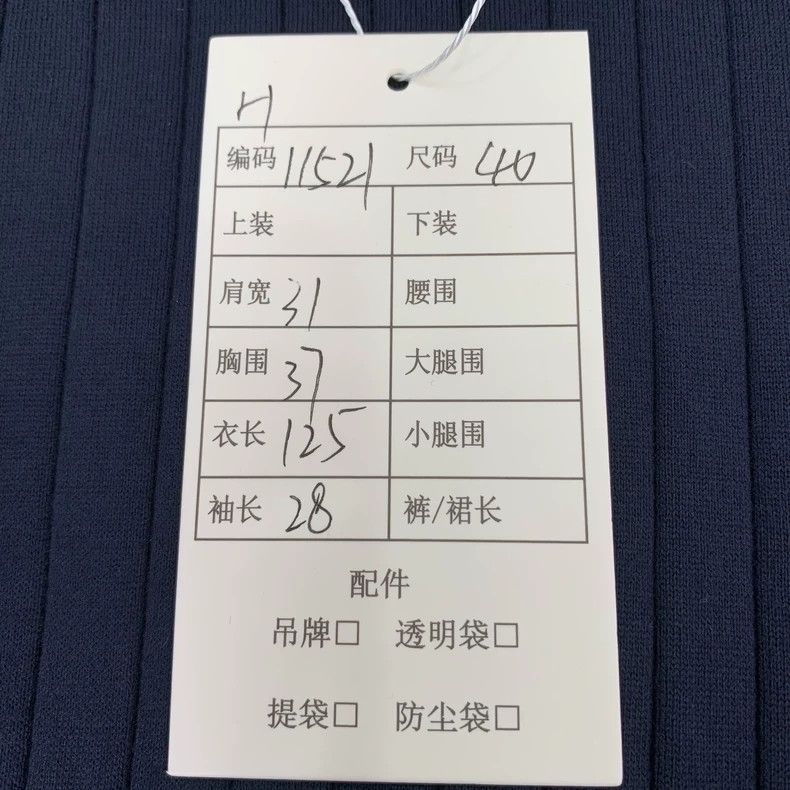 H
编码 11521 尺码 40
上装 下装
肩宽 31 腰围
胸围 37 大腿围
衣长 125 小腿围
袖长 28 裤/裙长
配件
吊牌□ 透明袋□
提袋□ 防尘袋□